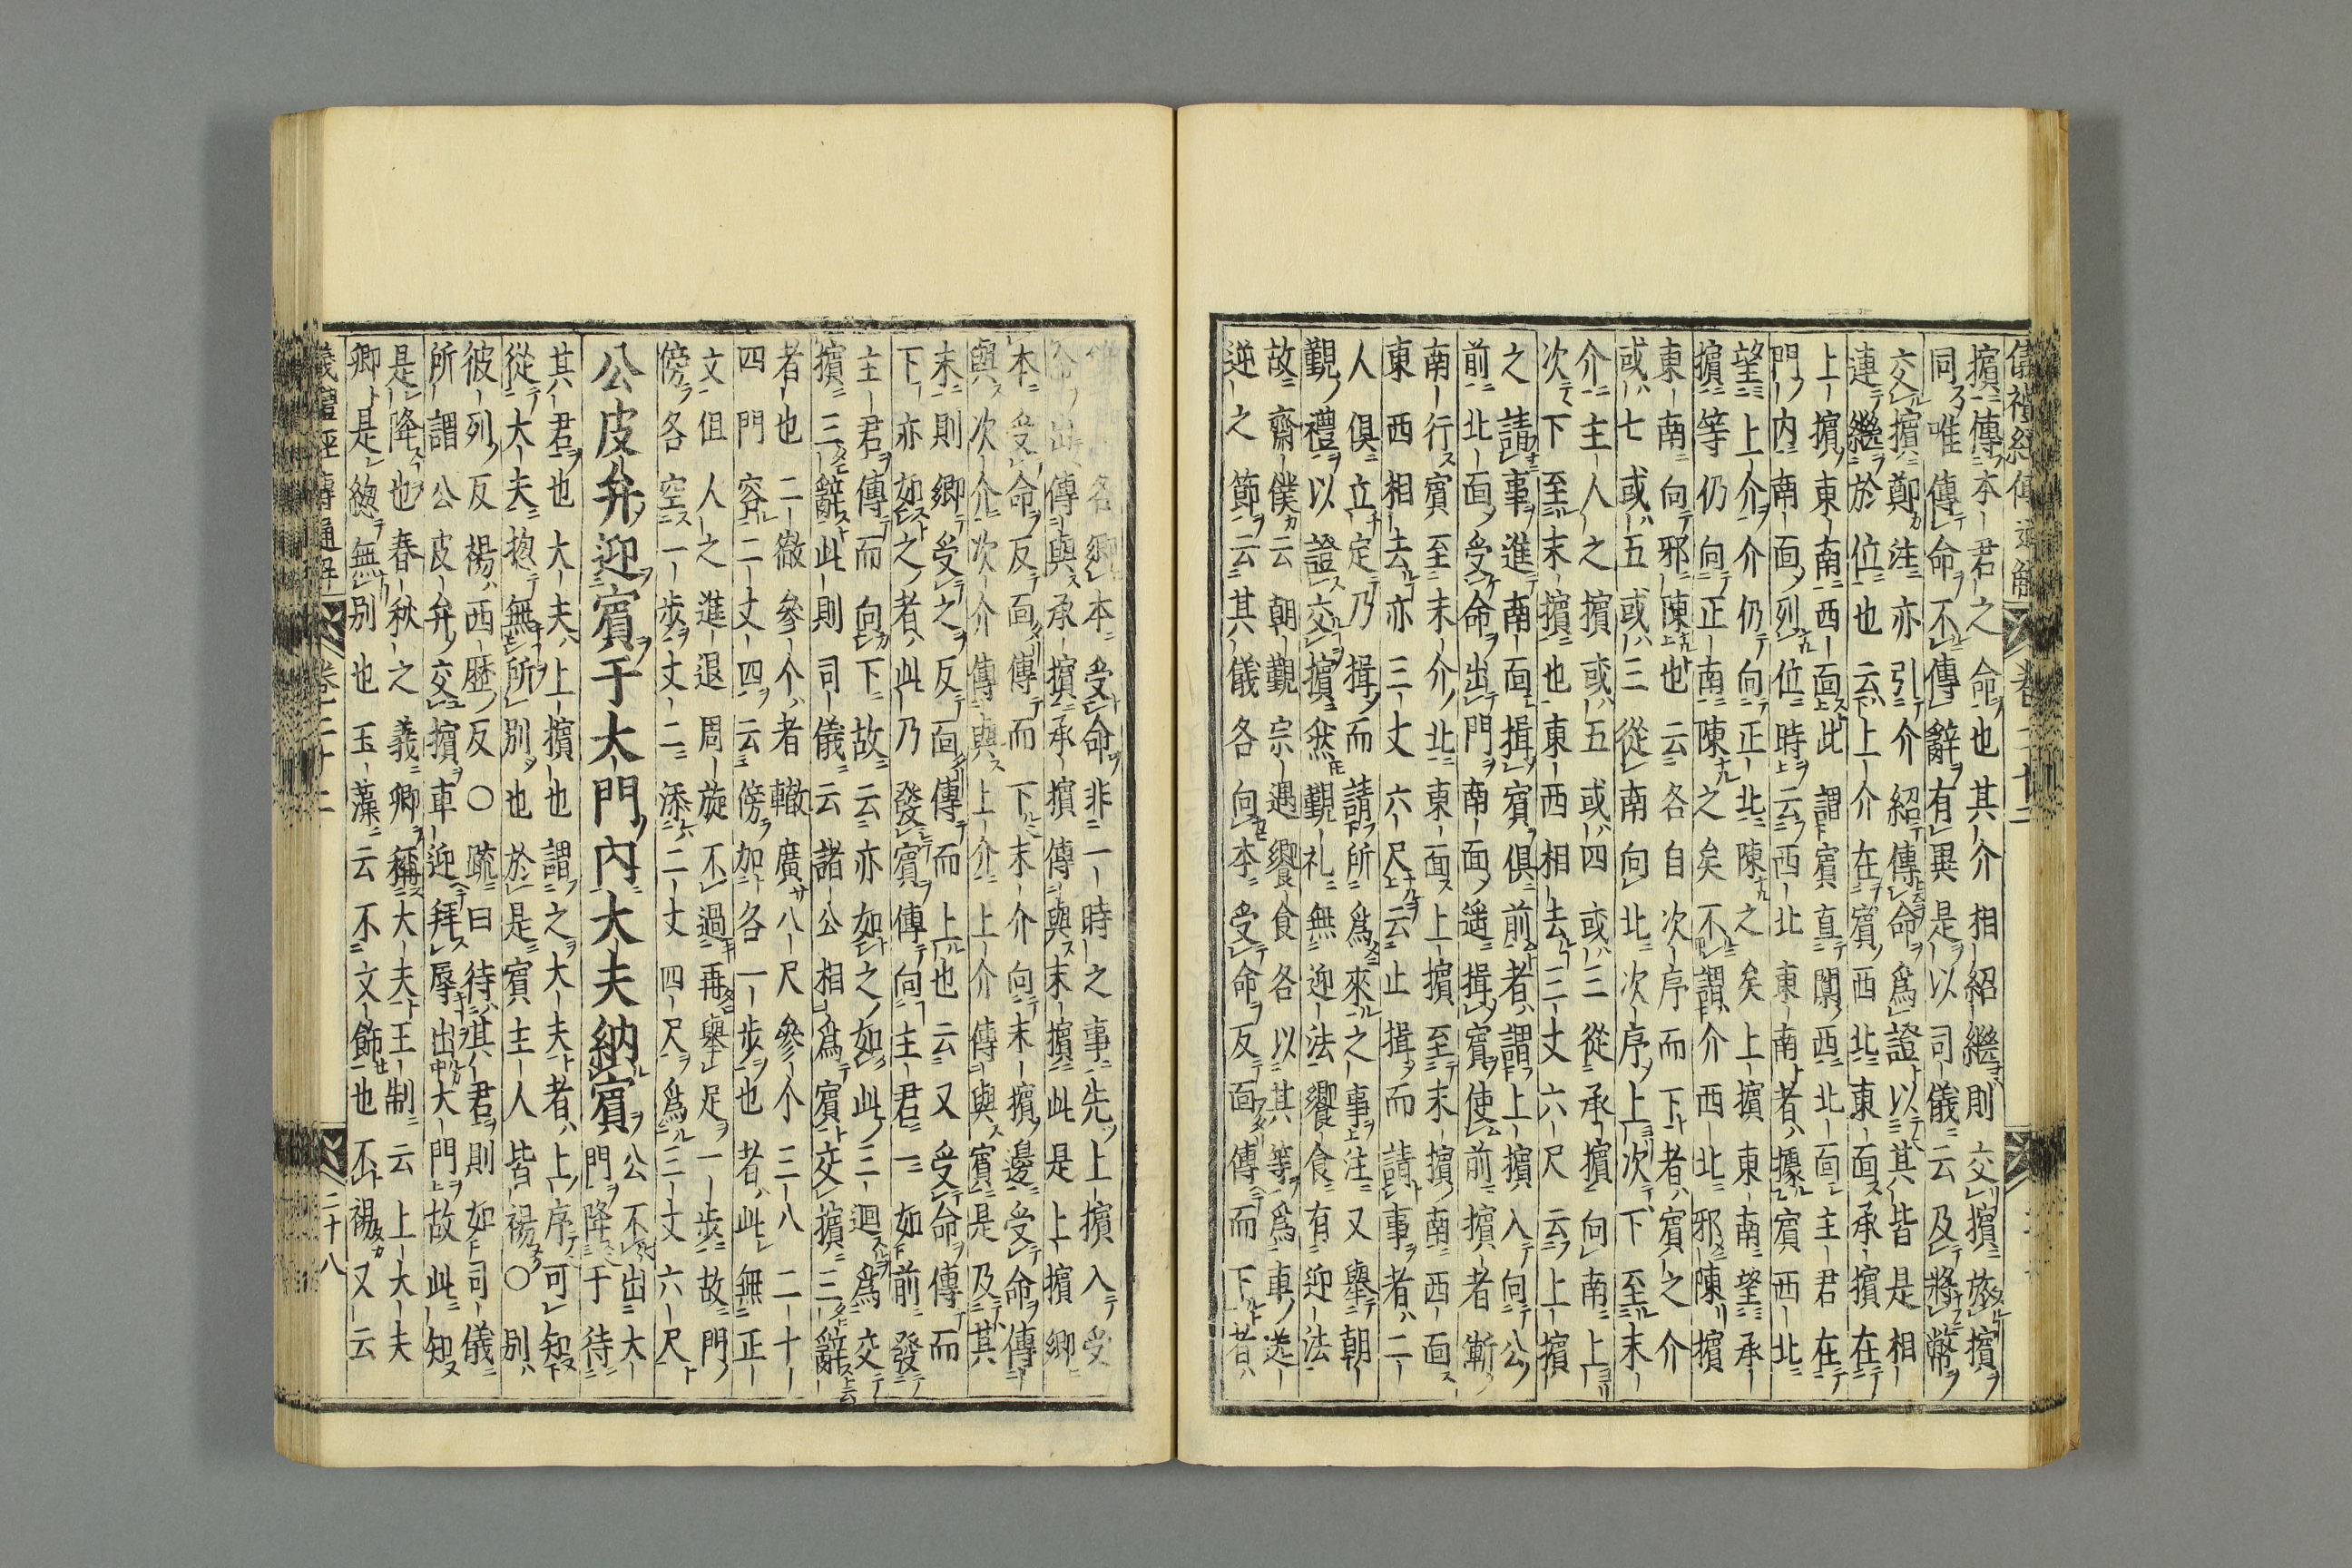 儀禮經傳通解 卷二十二
擯傳本君之命也其介相紹繼則交擯旅擯
同唯傳命不傳辭有異是以司儀云及將幣
交擯鄭注亦引介紹傳命爲證以其皆是相
連繼於位也云上介在賓西北東面承擯在
上擯東南西面此謂賓直闑西北面主君在
門内南面列位時云西北東南者據賓西北
望上介介仍向正北陳之矣上擯東南望承
擯等仍向正南陳之矣不謂介西北邪陳擯
東南向邪陳也云各自次序而下者賓之介
或七或五或三從南向北次序上次下至末
介主人之擯或五或四或三從承擯向南上
次下至末擯也東西相去三丈六尺云上擯
之請事進南面揖賓俱前者謂上擯入向公
前北面受命出門南面遥揖賓使前擯者漸
南行賓至末介北東面上擯至末擯南西面
東西相去亦三丈六尺云止揖而請事者二
人俱立定乃揖而請所爲來之事注又舉朝
覲禮以證交擯然覲礼無迎法饗食有迎法
故齋僕云朝覲宗遇饗食各以其等爲車送
逆之節云其儀各向本受命反面傳而下者
各鄉本受命非一時之事先上擯入受
命出傳與承擯承擯傳與末擯此是上擯鄉
本受命反面傳而下末介向末擯邊受命傳
與次介次介傳與上介上介傳與賓是及其
末則鄉受之反面傳而上也云又受命傳而
下亦如之者此乃發賓傳向主君一如前發
主君傳而向下故云亦如之如此三迴爲交
擯三辭此則司儀云諸公相爲賓交擯三辭
者也二徹參个者轍廣八尺參个三八二十
四門容二丈四云傍加各一步也者此無正
文但人之進退周旋不過再舉足一步故門
傍各空一步丈二添二丈四尺爲三丈六尺
公皮弁迎賓于大門内大夫納賓 公不出大
門降于待
其君也大夫上擯也謂之大夫者上序可知
從大夫揔無所別也於是賓主人皆裼〇別
彼列反裼西歴反〇疏曰待其君則如司儀
所謂公皮弁交擯車迎拜辱出大門故此知
是降也春秋之義卿稱大夫王制云上大夫
卿是緫無别也玉藻云不文飾也不裼又云
儀禮經傳通解 卷二十二 二十八